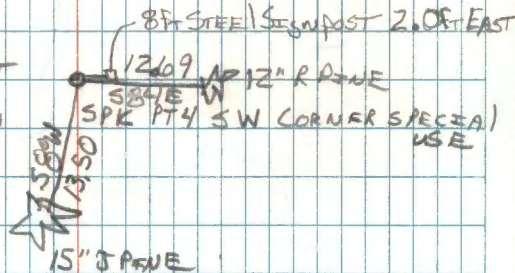 8FT STEEL SIGNPOST 2.0FT EAST
12.69
12" R PINE
S84E
SPK PT4 SW CORNER SPECIAL
USE
13.50
15" J PINE